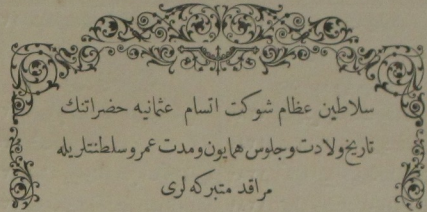 سلاطين عظام شوكت اتسام عثمانيه حضراتنك
تاريخ ولادت وجلوس همايون ومدت عمر وسلطنتلريله
مراقد متبركه لرى